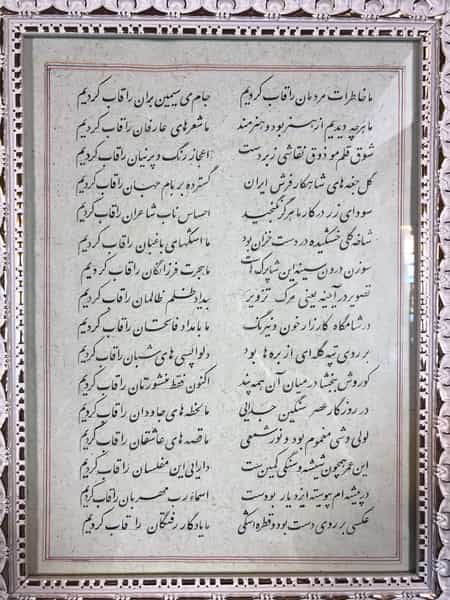 ما خاطرات مردمان را قاب کردیم جام می سیمین بران را قاب کردیم
ما هرچه دیدیم از هنر بود و هنرمند ما شعرهای عارفان را قاب کردیم
شوق قلم مو ذوق نقاشی زبردست اعجاز رنگ و پرنیان را قاب کردیم
گل های شاهکار فرش ایران گسترده بر بام جهان را قاب کردیم
سودای زر در کار ما هرگز نگنجید احساس ناب شاعران را قاب کردیم
شاخه گلی خشکیده در دست خزان بود ما اشکهای باغبان را قاب کردیم
سوزن درون سینه این شاپرک هاست ما هجرت فرزانگان را قاب کردیم
تصویر در آینه یعنی مرگ تزویر بیداد ظلم ظالمان را قاب کردیم
در شامگاه کارزار خون و نیرنگ ما بامداد فاتحان را قاب کردیم
بر روی تپه گله ای از بره ها بود دلواپسی های شبان را قاب کردیم
کوروش ببخشا در میان آن همه پند اکنون فقط منشورتان را قاب کردیم
در روزگار عصر سنگین جدایی ما لحظه های جاودان را قاب کردیم
لولی وشی مغموم بود و نور شمعی ما قصه های عاشقان را قاب کردیم
این همچون شیشه و سنگی کمین ست دارایی این مفلسان را قاب کردیم
در پیشه ام پیوسته ایزد یار بودست اسماء رب مهربان را قاب کردیم
عکسی بر روی دست بود و قطره اشکی ما یادگار رفتگان را قاب کردیم